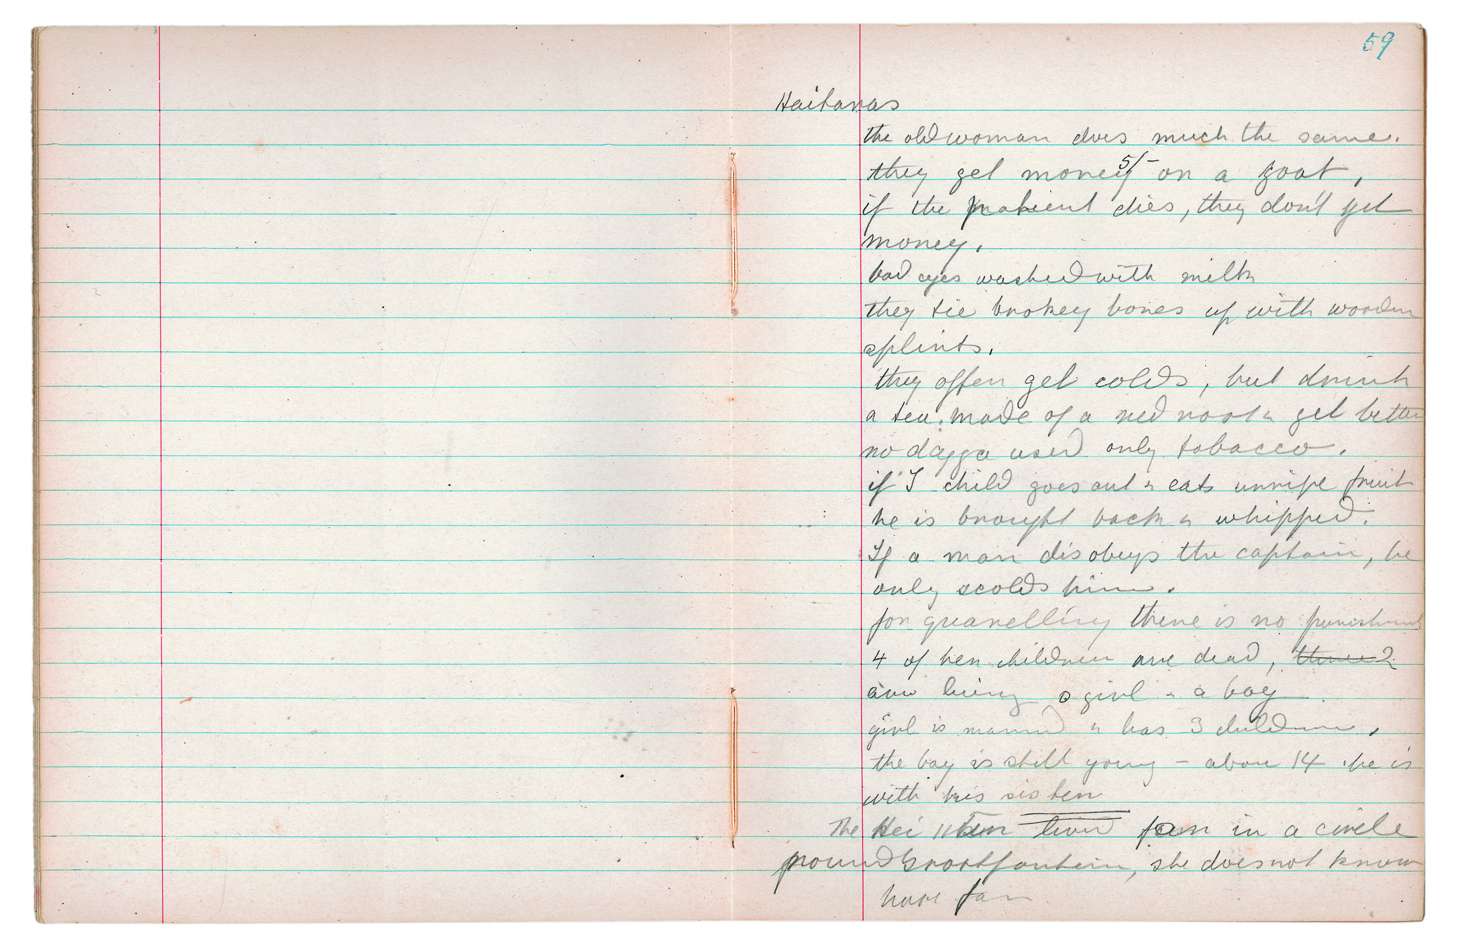 59
Haitanas
the old woman does much the same.
they get money 5/- on a goat,
if the patient dies, they don't get
money.
bad eyes washed with milk
they tie brokey bones up with wooden
splints.
they often get colds, but drink
a tea, made of a red root & get better
no dagga used only tobacco.
if child goes out & eats unripe fruit
he is brought back & whipped.
If a man disobeys the captain, he
only scolds him.
for quarelling there is no punishment
4 of her children are dead, three 2
are living a girl & a boy
girl is married & has 3 children.
the boy is still young - about 14 he is
with his sister
The Hei //um lived far in a circle
round Grootfontein, she does not know
how far